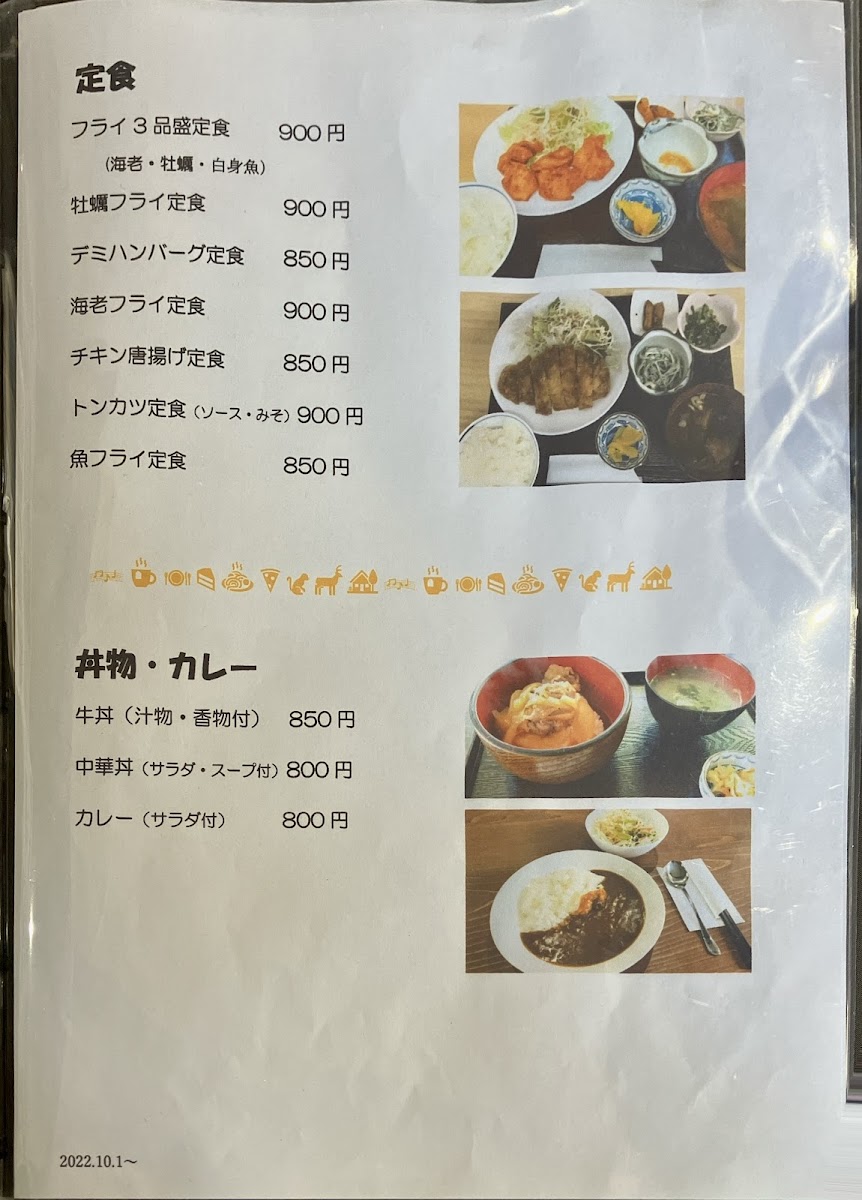 定食
フライ3品盛定食 900円
(海老・牡蠣・白身魚)
牡蠣フライ定食 900円
デミハンバーグ定食 850円
海老フライ定食 900円
チキン唐揚げ定食 850円
トンカツ定食(ソース・みそ) 900円
魚フライ定食 850円
丼物・カレー
牛丼(汁物・香物付) 850円
中華丼(サラダ・スープ付) 800円
カレー(サラダ付) 800円
2022.10.1~